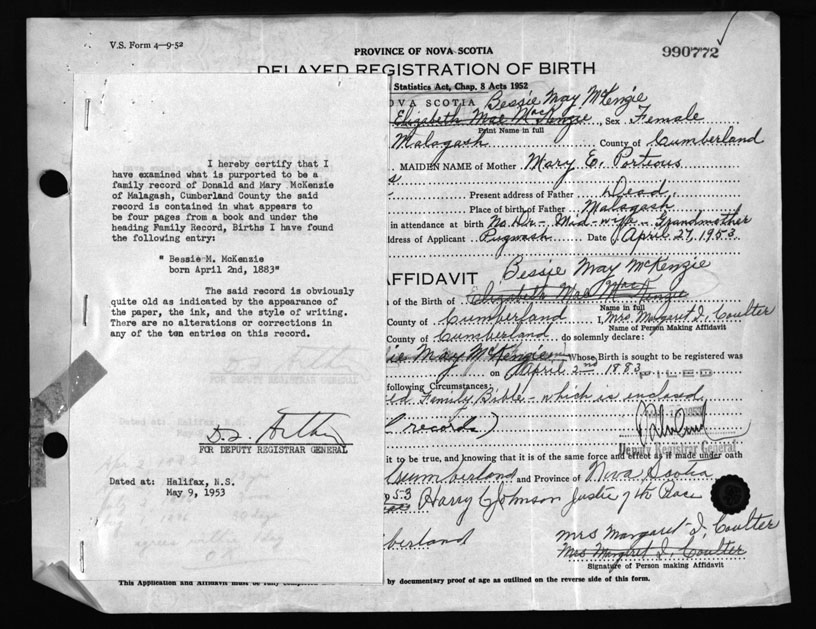 V.S. Form 4—9-52
PROVINCE OF NOVA SCOTIA
990772
DELAYED REGISTRATION OF BIRTH
Statistics Act, Chap. 8 Acts 1952
OVA SCOTIA Bessie May McKenzie
Elizabeth Mae MacKenzie, Sex Female
Print Name in full
Malagash County of Cumberland
MAIDEN NAME of Mother Mary E. Porteous
Present address of Father Dead
Place of birth of Father Malagash
in attendance at birth No Dr - Mid-wife - Grandmother
dress of Applicant Pugwash Date April 27, 1953
I hereby certify that I
have examined what is purported to be a
family record of Donald and Mary McKenzie
of Malagash, Cumberland County the said
record is contained in what appears to
be four pages from a book and under the
heading Family Record, Births I have found
the following entry:
" Bessie M. McKenzie
born April 2nd, 1883"
The said record is obviously
quite old as indicated by the appearance of
the paper, the ink, and the style of writing.
There are no alterations or corrections in
any of the ten entries on this record.
FOR DEPUTY REGISTRAR GENERAL
Dated at: Halifax, N.S.
May 9, 1953
AFFIDAVIT Bessie May McKenzie
n of the Birth of Elizabeth Mae MacKenzie
Name in full
County of Cumberland I, Mrs Margaret I. Coulter
Name of Person Making Affidavit
County of Cumberland do solemnly declare:
ie May McKenzie Whose Birth is sought to be registered was
on April 2nd 1883
FILED
following Circumstances:
Family Bible - which is enclosed
records)
Deputy Registrar General
it to be true, and knowing that it is of the same force and effect as if made under oath
Cumberland and Province of Nova Scotia
53 Harry G Johnson Justice of the Peace
berland
Mrs Margaret I. Coulter
Mrs Margaret I. Coulter
Signature of Person making Affidavit
This Application and Affidavit must be fully completed
by documentary proof of age as outlined on the reverse side of this form.